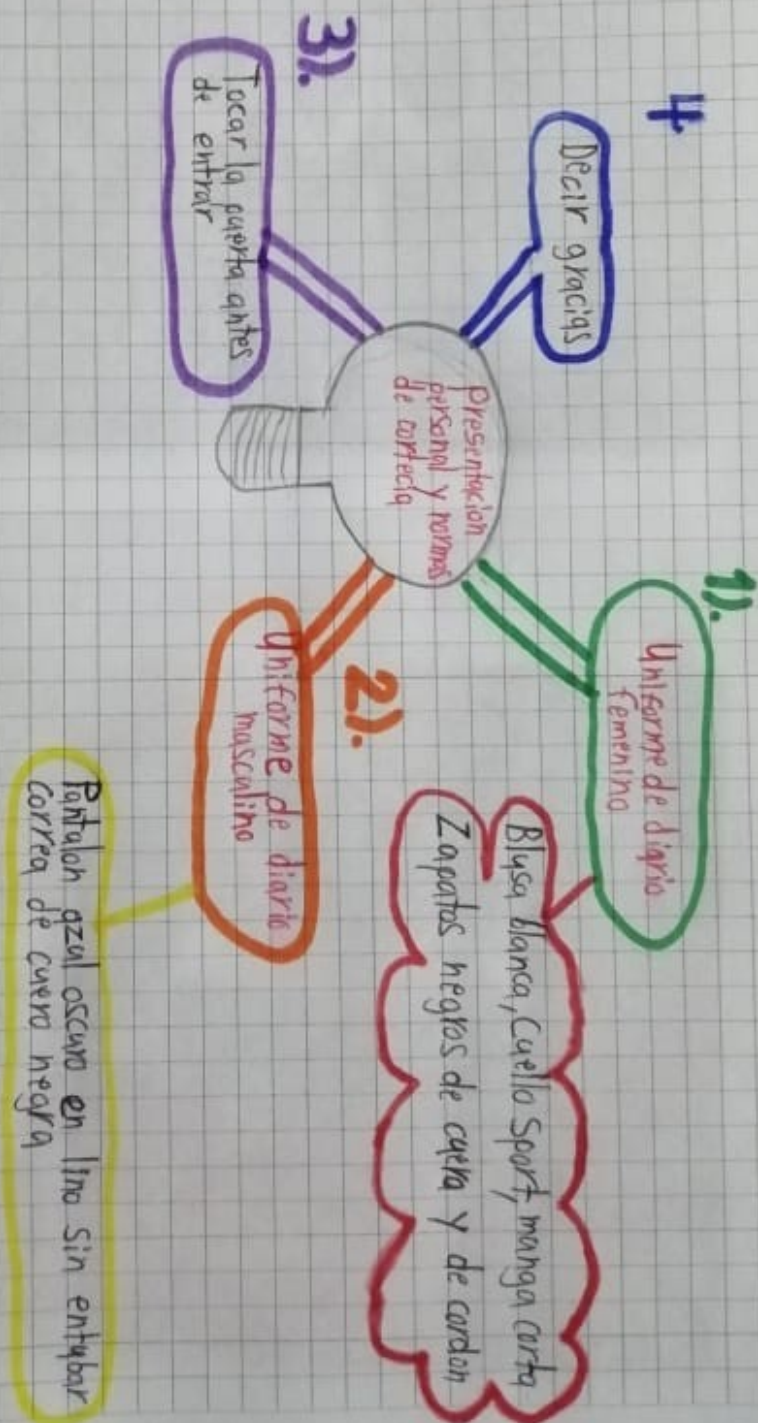 Presentacion
personal y normas
de cortecia
1).
Uniforme de diario
femenino
Blusa blanca, Cuello Sport, manga corta
Zapatos negros de cuero y de cordon
2).
Uniforme de diario
masculino
Pantalon azul oscuro en lino sin entubar
correa de cuero negra
3).
Tocar la puerta antes
de entrar
4
Decir gracias